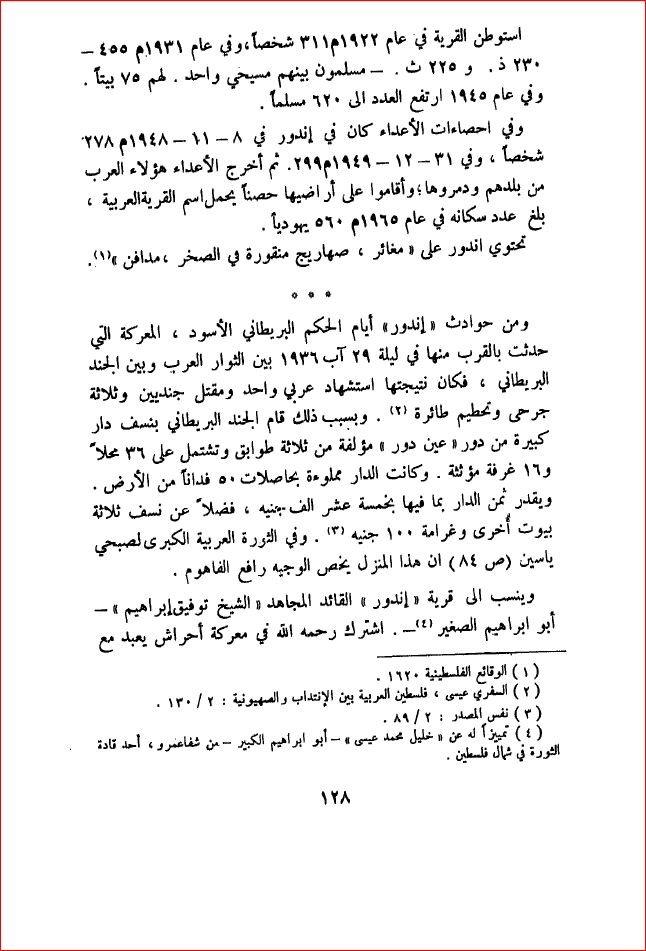 استوطن القرية في عام ١٩٢٢م٣١١ شخصاً،وفي عام ١٩٣١م ٤٥٥ –
٢٣٠ ذ. و ٢٢٥ ث . – مسلمون بينهم مسيحي واحد . لهم ٧٥ بيتاً .
وفي عام ١٩٤٥ ارتفع العدد الى ٦٢٠ مسلماً .
وفي احصاءات الأعداء كان في إندور في ٨ – ١١ – ١٩٤٨م ٢٧٨
شخصاً ، وفي ٣١ – ١٢ – ١٩٤٩م٢٩٩. ثم أخرج الأعداء هؤلاء العرب
من بلدهم ودمروها؛وأقاموا على أراضيها حصناً يحمل اسم القرية العربية ،
بلغ عدد سكانه في عام ١٩٦٥م ٥٦٠ يهودياً .
تحتوي اندور على « مغائر ، صهاريج منقورة في الصخر ،مدافن »(١).
* * *
ومن حوادث «إندور» أيام الحكم البريطاني الأسود ، المعركة التي
حدثت بالقرب منها في ليلة ٢٩ آب ١٩٣٦ بين الثوار العرب وبين الجند
البريطاني ، فكان نتيجتها استشهاد عربي واحد ومقتل جنديين وثلاثة
جرحى وتحطيم طائرة (٢) . وبسبب ذلك قام الجند البريطاني بنسف دار
كبيرة من دور « عين دور » مؤلفة من ثلاثة طوابق وتشتمل على ٣٦ محلاً
و١٦ غرفة مؤثثة . وكانت الدار مملوءة بحاصلات ٥٠ فداناً من الأرض .
ويقدر ثمن الدار بما فيها بخمسة عشر الف جنيه ، فضلاً عن نسف ثلاثة
بيوت أُخرى وغرامة ١٠٠ جنيه (٣) . وفي الثورة العربية الكبرى لصبحي
ياسين (ص ٨٤) ان هذا المنزل يخص الوجيه رافع الفاهوم .
وينسب الى قرية « إندور » القائد المجاهد «الشيخ توفيق إبراهيم » –
أبو ابراهيم الصغير (٤)– . اشترك رحمه الله في معركة أحراش يعبد مع
(١) الوقائع الفلسطينية ١٦٢٠ .
(٢) السفري عيسى ، فلسطين العربية بين الإنتداب والصهيونية : ٢ / ١٣٠ .
(٣) نفس المصدر : ٢ / ٨٩ .
(٤) تمييزاً له عن « خليل محمد عيسى » – أبو ابراهيم الكبير – من شفاعمرو ، أحد قادة
الثورة في شمال فلسطين .
١٢٨